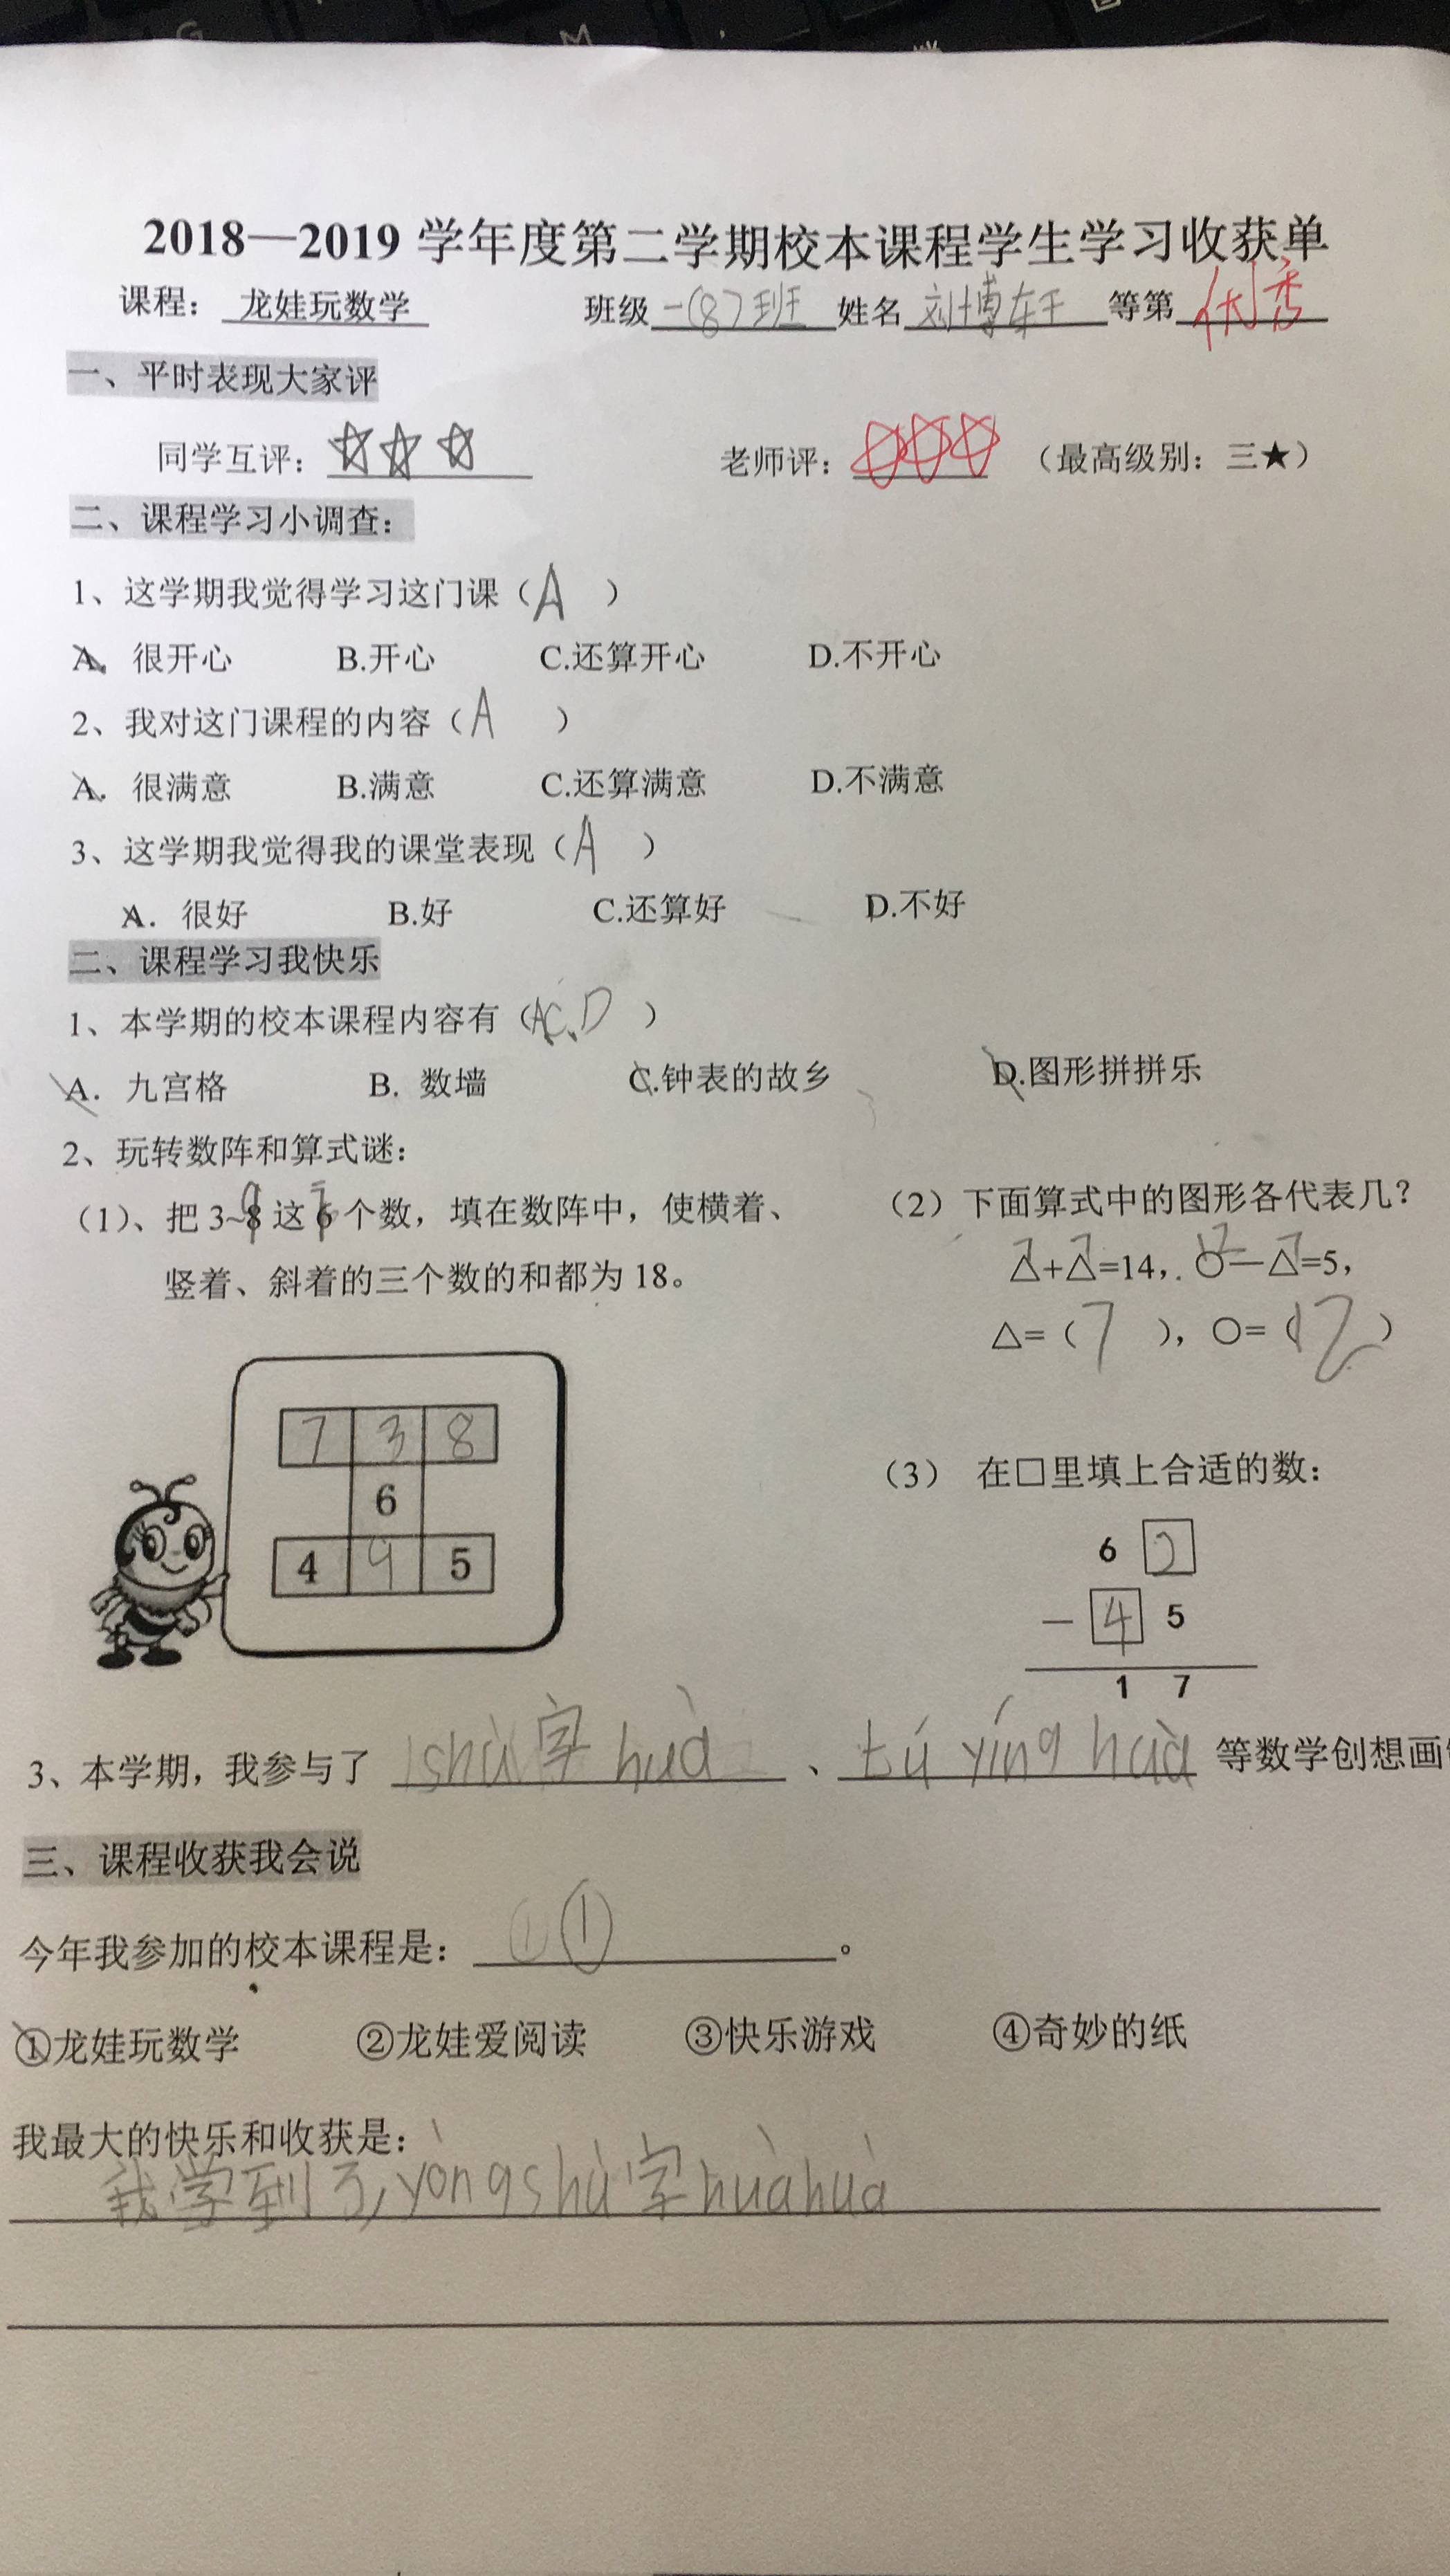 2018—2019 学年度第二学期校本课程学生学习收获单
课程： 龙娃玩数学 班级 一(8)班 姓名 刘博轩 等第 优秀
一、平时表现大家评
同学互评：☆☆☆ 老师评：☆☆☆ （最高级别：三★）
二、课程学习小调查：
1、这学期我觉得学习这门课（A ）
A. 很开心 B.开心 C.还算开心 D.不开心
2、我对这门课程的内容（A ）
A. 很满意 B.满意 C.还算满意 D.不满意
3、这学期我觉得我的课堂表现（A ）
A. 很好 B.好 C.还算好 D.不好
二、课程学习我快乐
1、本学期的校本课程内容有（AC、D ）
A. 九宫格 B. 数墙 C.钟表的故乡 D.图形拼拼乐
2、玩转数阵和算式谜：
（1）、把 3~9 这 7 个数，填在数阵中，使横着、
竖着、斜着的三个数的和都为 18。
7 3 8
6
4 9 5
（2）下面算式中的图形各代表几？
7 7 12 7
△+△=14，○—△=5，
△=（7 ），○=（12）
（3） 在□里填上合适的数：
6 2
— 4 5
1 7
3、本学期，我参与了 shù字huà 、tú yíng huà 等数学创想画
三、课程收获我会说
今年我参加的校本课程是： ① ① 。
①龙娃玩数学 ②龙娃爱阅读 ③快乐游戏 ④奇妙的纸
我最大的快乐和收获是：
我学到了,yòngshù字huàhuà